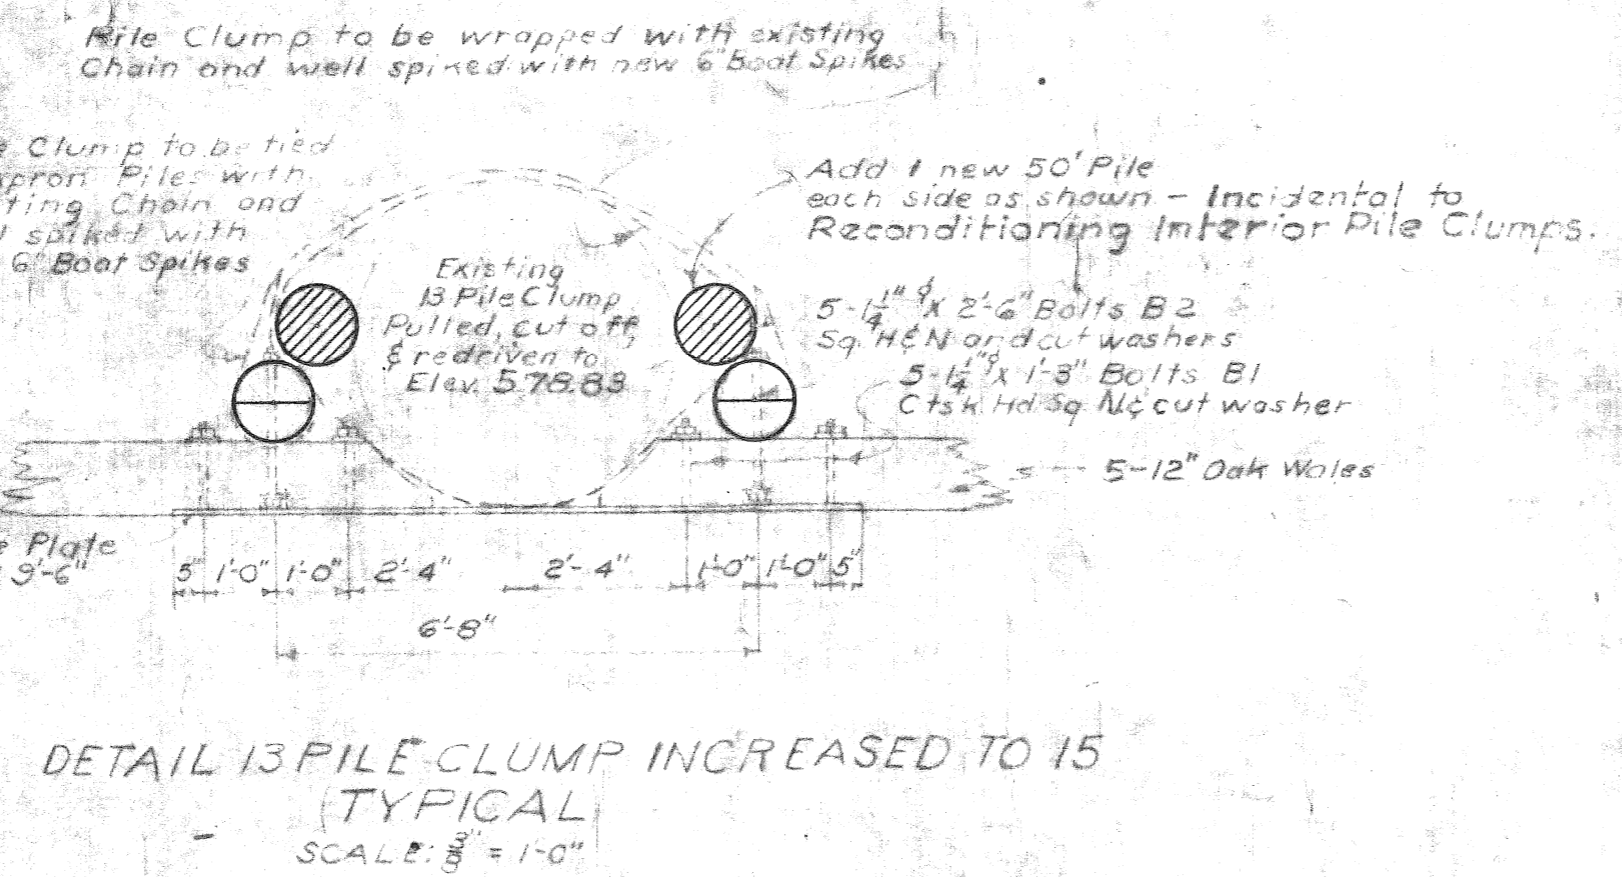 Pile Clump to be wrapped with existing
Chain and well spiked with new 6" Boat Spikes
Clump to be tied
Piles with
Chain and
spiked with
6" Boat Spikes
Add 1 new 50' Pile
each side as shown - Incidental to
Reconditioning Interior Pile Clumps.
Existing
13 Pile Clump
Pulled, cut off
& redriven to
Elev. 578.83
5-1 1/4" ϕ x 2'-6" Bolts B2
Sq. H & N and cut washers
5-1 1/4" ϕ x 1'-3" Bolts B1
Ctsk Hd Sq N & cut washer
5-12" Oak Wales
Plate
9'-6"
5" 1'-0" 1'-0" 2'-4" 2'-4" 1'-0" 1'-0" 5"
6'-8"
DETAIL 13 PILE CLUMP INCREASED TO 15
(TYPICAL)
SCALE: 3/8" = 1'-0"